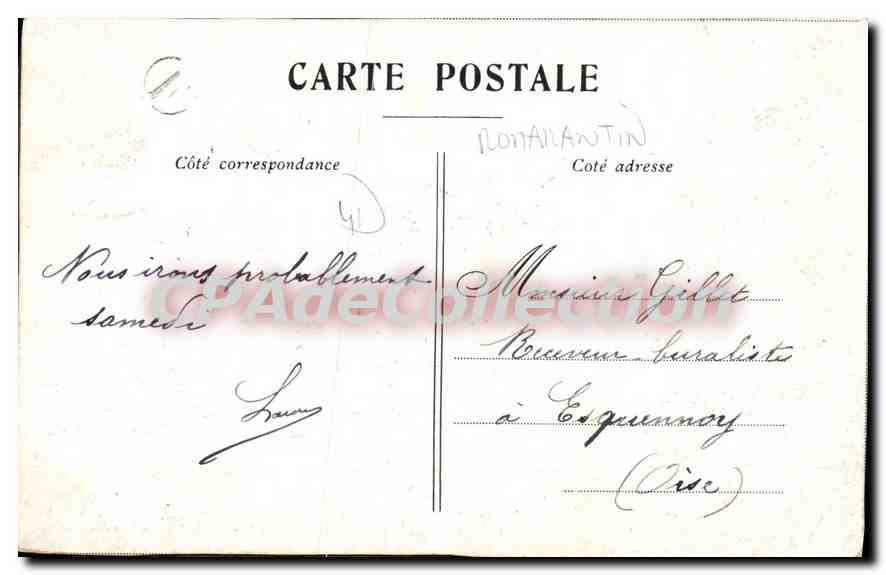 CARTE POSTALE
ROMARANTIN
Côté correspondance
Coté adresse
41
Nous irons probablement
samedi
Monsieur Gillet
Receveur-buraliste
à Esquennoy
(Oise)
CPAdeCollection